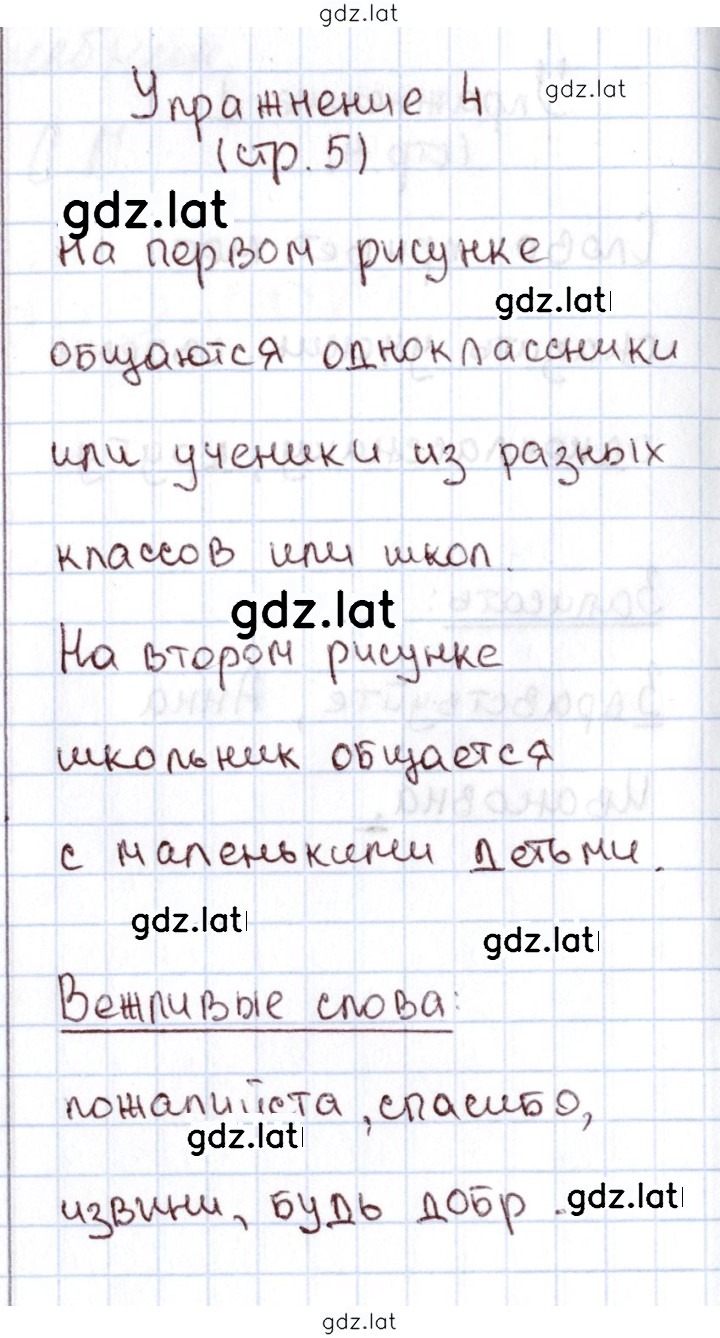 gdz.lat
Упражнение 4
gdz.lat
(стр. 5)
gdz.lat
На первом рисунке
gdz.lat
общаются одноклассники
или ученики из разных
классов или школ.
gdz.lat
На втором рисунке
школьник общается
с маленькими детьми.
gdz.lat
gdz.lat
Вежливые слова:
пожалуйста, спасибо,
gdz.lat
извини, будь добр.
gdz.lat
gdz.lat